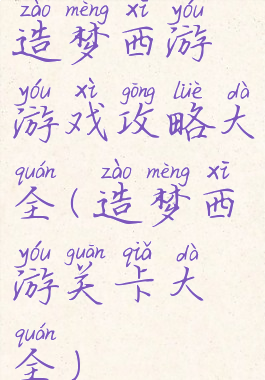 zào mèng xī yóu
造梦西游
yóu xì gōng lüè dà
游戏攻略大
quán zào mèng xī
全(造梦西
yóu guān qiǎ dà
游关卡大
quán
全)